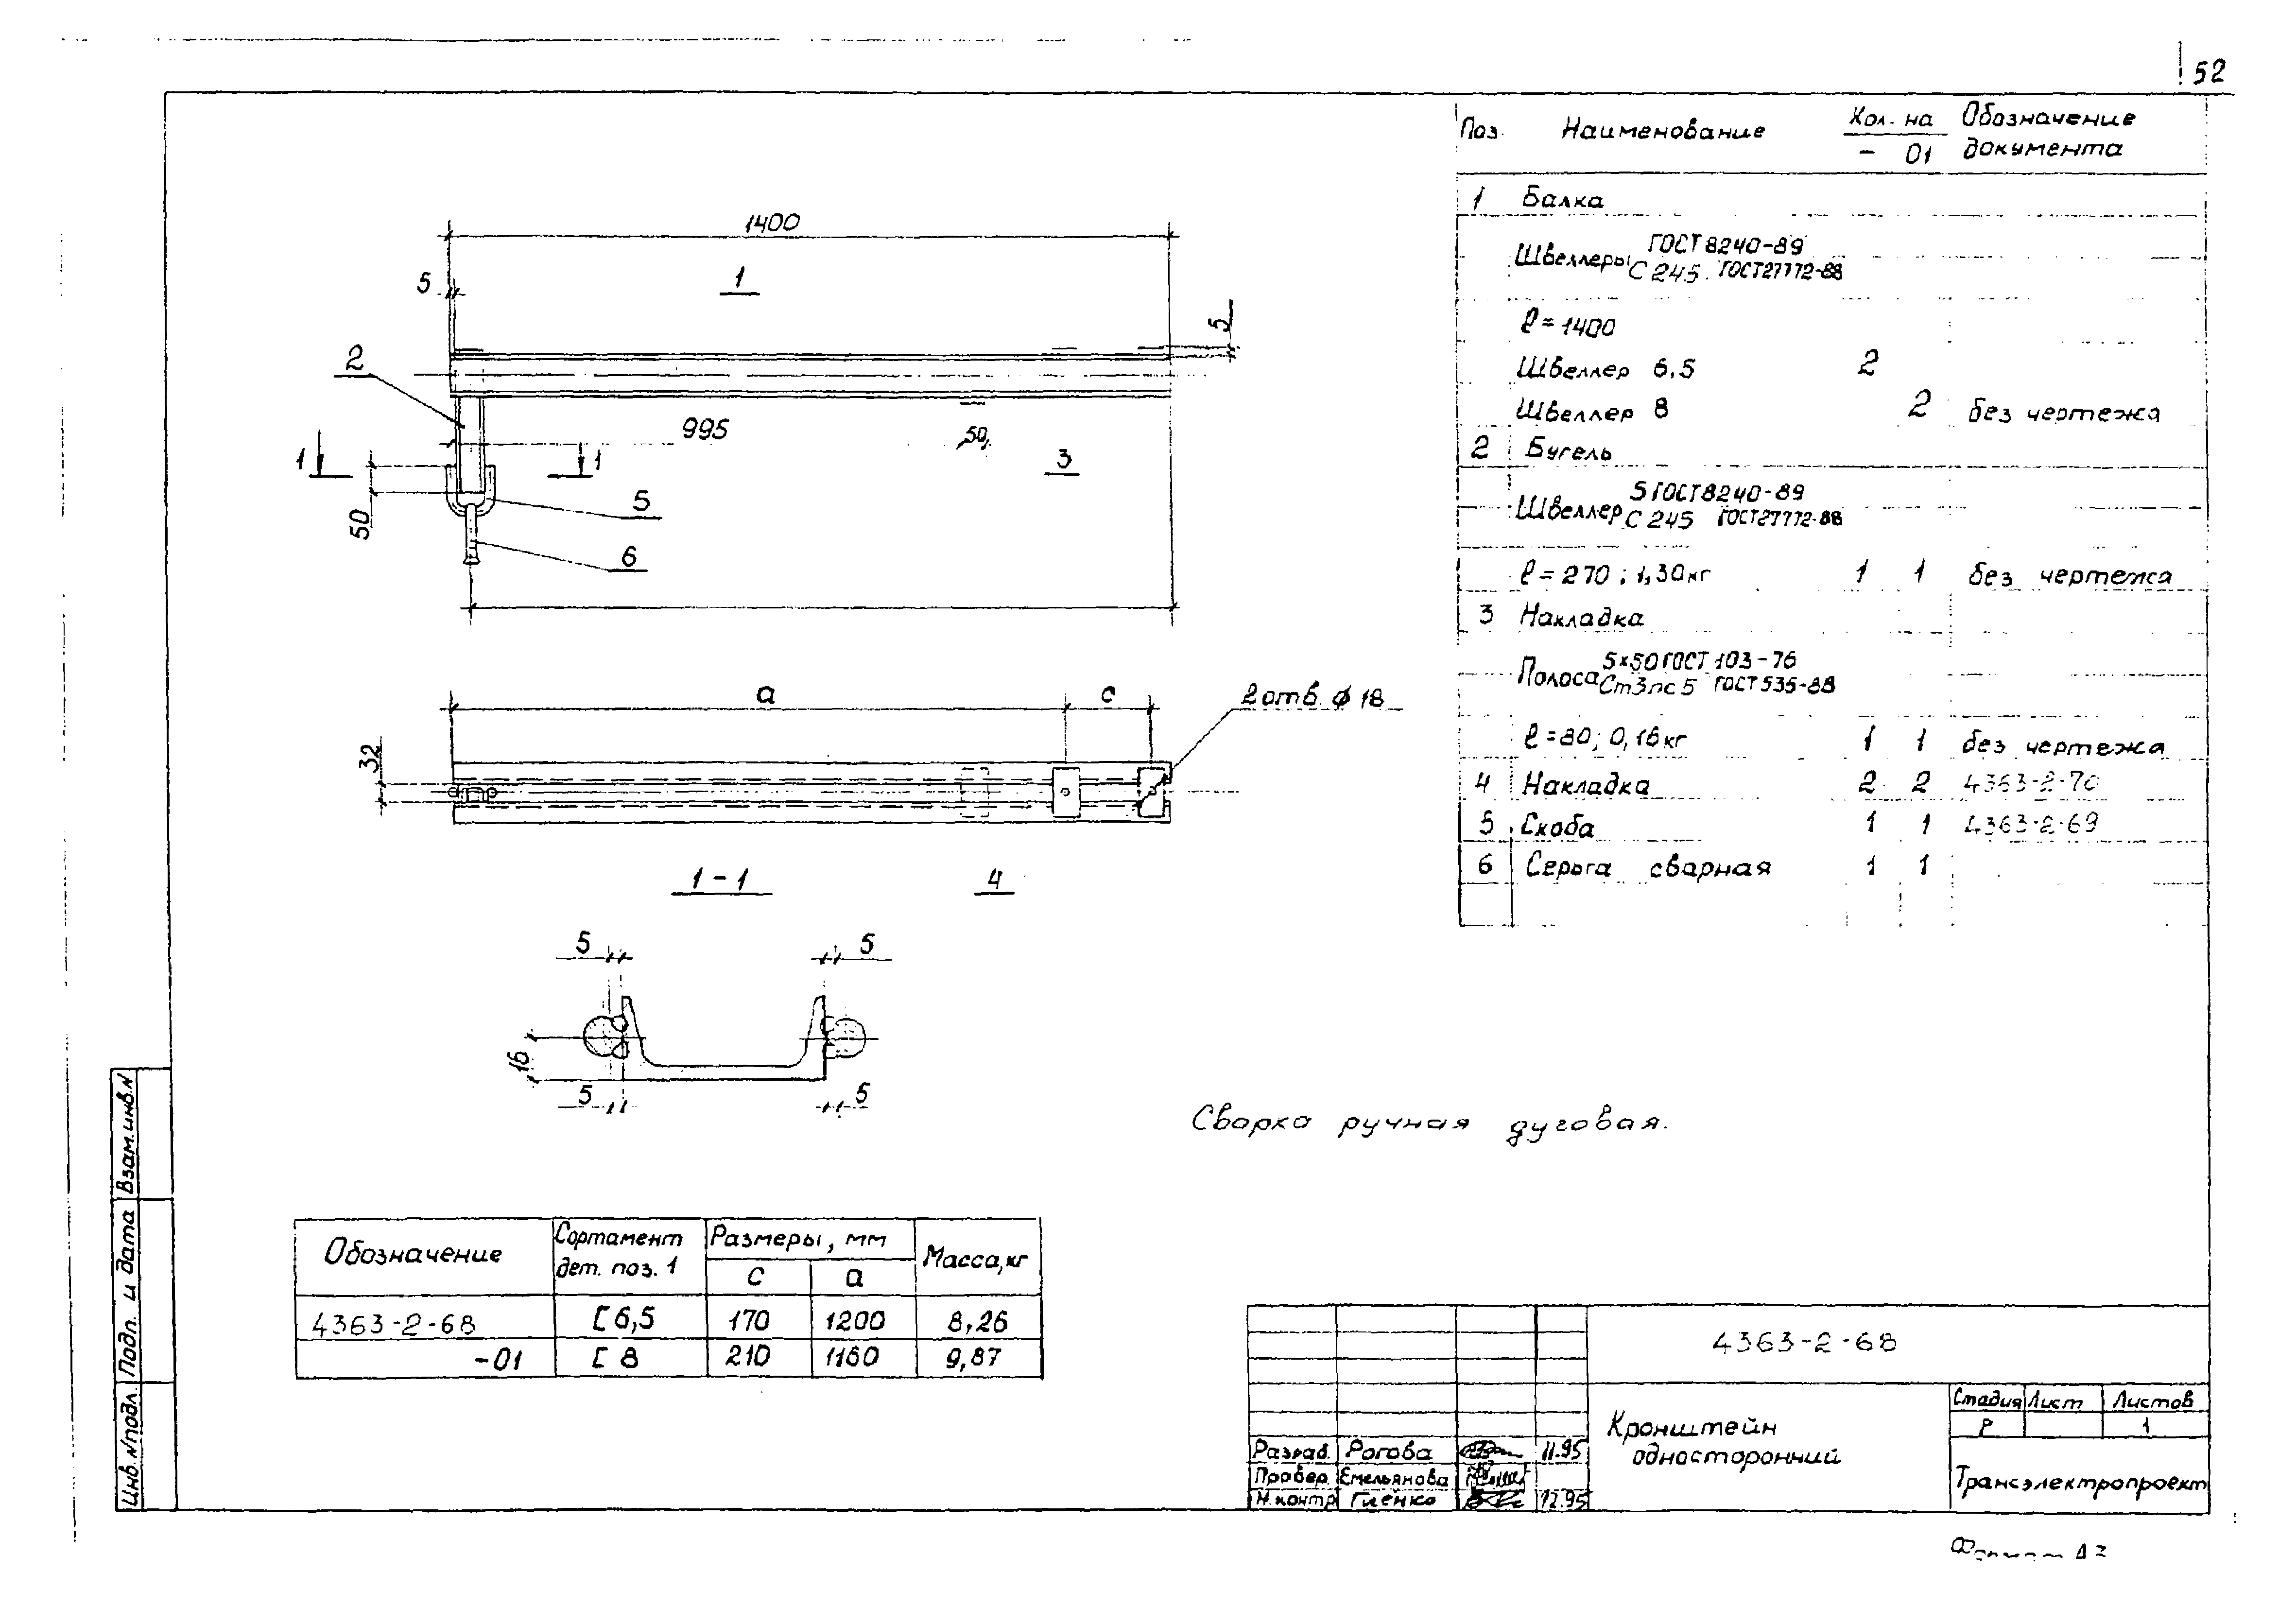 52
Поз. Наименование Кол. на Обозначение документа
- 01
1 Балка
Швеллеры ГОСТ 8240-89
С 245 ГОСТ 27772-88
ℓ=1400
Швеллер 6,5 2
Швеллер 8 2 без чертежа
2 Бугель
Швеллер 5 ГОСТ 8240-89
С 245 ГОСТ 27772-88
ℓ=270; 1,30кг 1 1 без чертежа
3 Накладка
Полоса 5×50 ГОСТ 103-76
Ст3пс5 ГОСТ 535-88
ℓ=80; 0,16кг 1 1 без чертежа
4 Накладка 2 2 4363-2-70
5 Скоба 1 1 4363-2-69
6 Серьга сварная 1 1
1400
5
1
5
2
995
50
1 1
3
50
5
6
а с
2 отв. ⌀ 18
32
1-1
4
5 5
16
5 5
Сварка ручная дуговая.
Обозначение Сортамент дет. поз. 1 Размеры, мм Масса, кг
с а
4363-2-68 [ 6,5 170 1200 8,26
-01 [ 8 210 1160 9,87
Инв. N подл. Подп. и дата Взам. инв. N
4363-2-68
Кронштейн
односторонний
Стадия Лист Листов
Р 1
Разраб. Рогова 11.95
Провер. Емельянова
Н.контр Гиенко 12.95
Трансэлектропроект
Формат А3